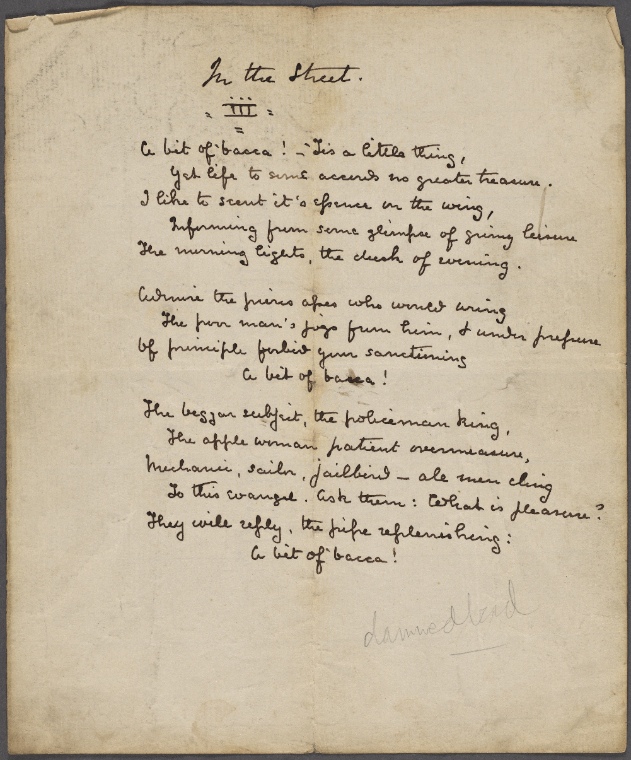 In the Street.
III
A bit of 'bacca! – 'Tis a little thing,
Yet life to some accords no greater treasure.
I like to scent it's essence on the wing,
Informing from some glimpse of grimy leisure
The morning lights, the dusk of evening.
Admire the pious asses who would wring
The poor man's joys from him, & under pressure
Of principle forbid your sanctioning
A bit of bacca!
The beggar subject, the policeman king,
The apple woman patient overmeasure,
Mechanic, sailor, jailbird – all men cling
To this evangel. Ask them: What is pleasure?
They will reply, the pipe replenishing:
A bit of 'bacca!
damned bad